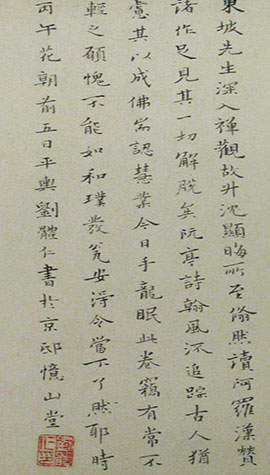 東坡先生深入禪觀故升沈顯晦所至翛然讀阿羅漢贊
諸作足見其一切解脫矣阮亭詩翰風流追踪古人猶
慮其以成佛耑認慧業今日手龍眠此卷竊有當不
輕之顧愧不能如和璞發瓮安得令當下了然耶時
丙午花朝前五日平輿劉體仁書於京邸憶山堂